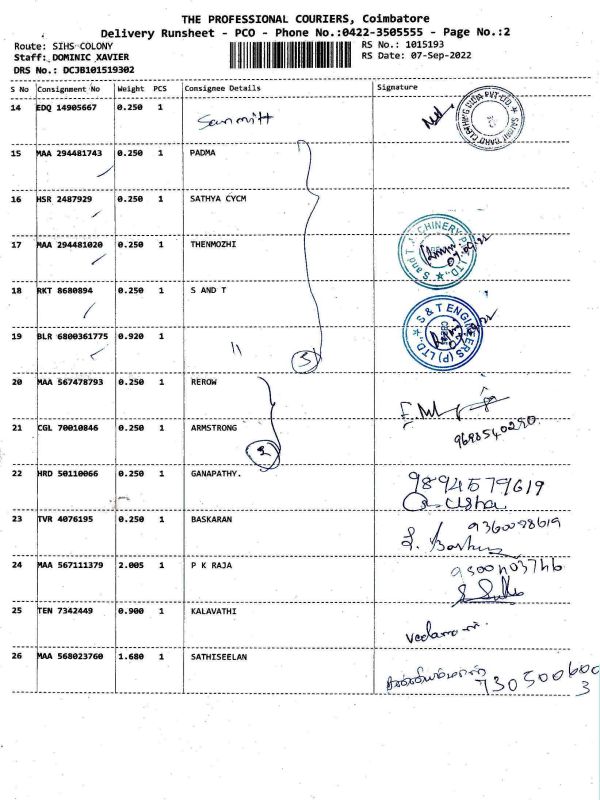 THE PROFESSIONAL COURIERS, Coimbatore
Delivery Runsheet - PCO - Phone No.:0422-3505555 - Page No.:2
Route: SIHS COLONY
RS No.: 1015193
Staff: DOMINIC XAVIER
RS Date: 07-Sep-2022
DRS No.: DCJB101519302
S No Consignment No Weight PCS Consignee Details Signature
14 EDQ 14905667 0.250 1 Sanmitt
15 MAA 294481743 0.250 1 PADMA
16 HSR 2487929 0.250 1 SATHYA CYCM
17 MAA 294481020 0.250 1 THENMOZHI
18 RKT 8680894 0.250 1 S AND T
19 BLR 6800361775 0.920 1 11
5
S & T ENGINEERS (P) LTD.,
20 MAA 567478793 0.250 1 REROW
21 CGL 70010846 0.250 1 ARMSTRONG
2
22 HRD 50110066 0.250 1 GANAPATHY. 9894579619
Usha
23 TVR 4076195 0.250 1 BASKARAN 9360098619
24 MAA 567111379 2.005 1 P K RAJA
25 TEN 7342449 0.900 1 KALAVATHI
26 MAA 568023760 1.680 1 SATHISEELAN
730500600
3